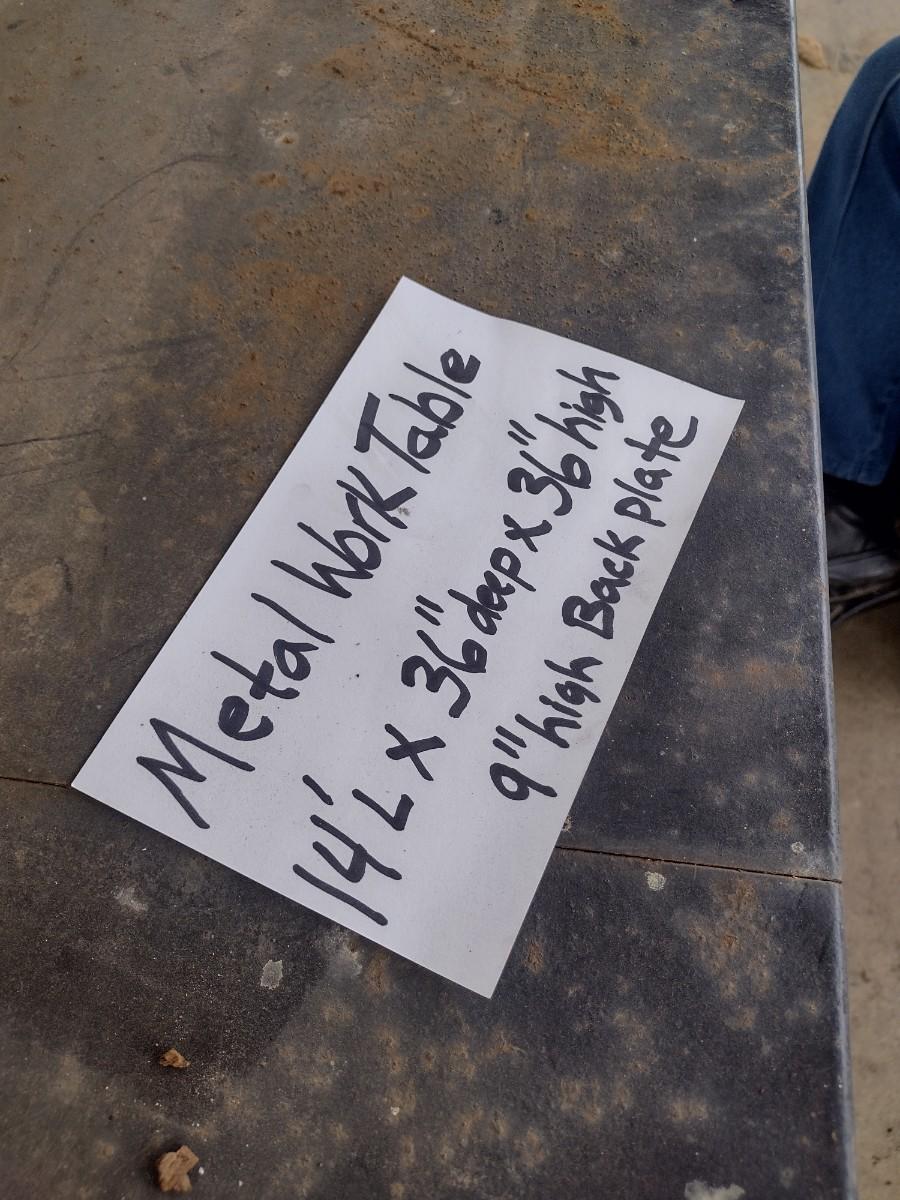 Metal Work Table
14' L x 36" deep x 36" high
9" high Back plate